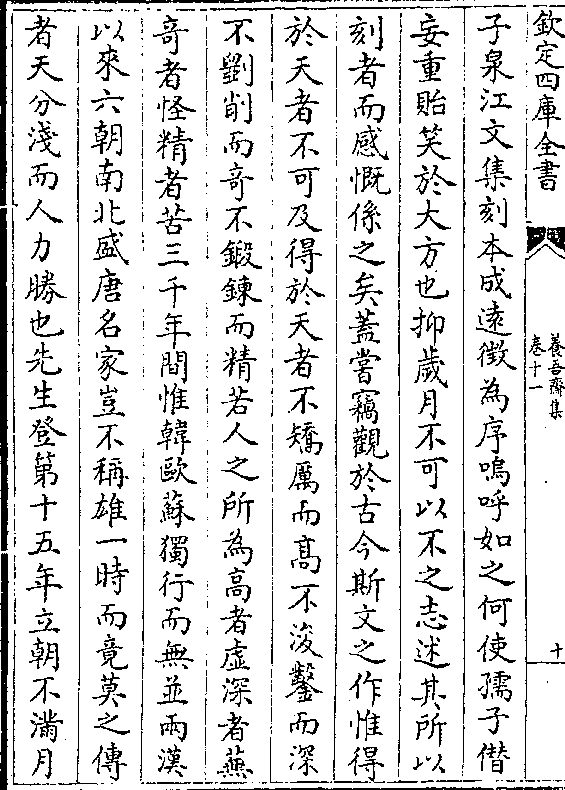 欽定四庫全書
養吾齋集
卷十一
十
子泉江文集刻本成遠徵為序嗚呼如之何使孺子僣
妄重貽笑於大方也抑歲月不可以不之志述其所以
刻者而感慨係之矣蓋嘗竊觀於古今斯文之作惟得
於天者不可及得於天者不矯厲而髙不浚鑿而深
不劉削而竒不鍛鍊而精若人之所為高者虛深者蕪
竒者怪精者苦三千年間惟韓歐蘇獨行而無並兩漢
以來六朝南北盛唐名家豈不稱雄一時而竟莫之傳
者天分淺而人力勝也先生登第十五年立朝不滿月